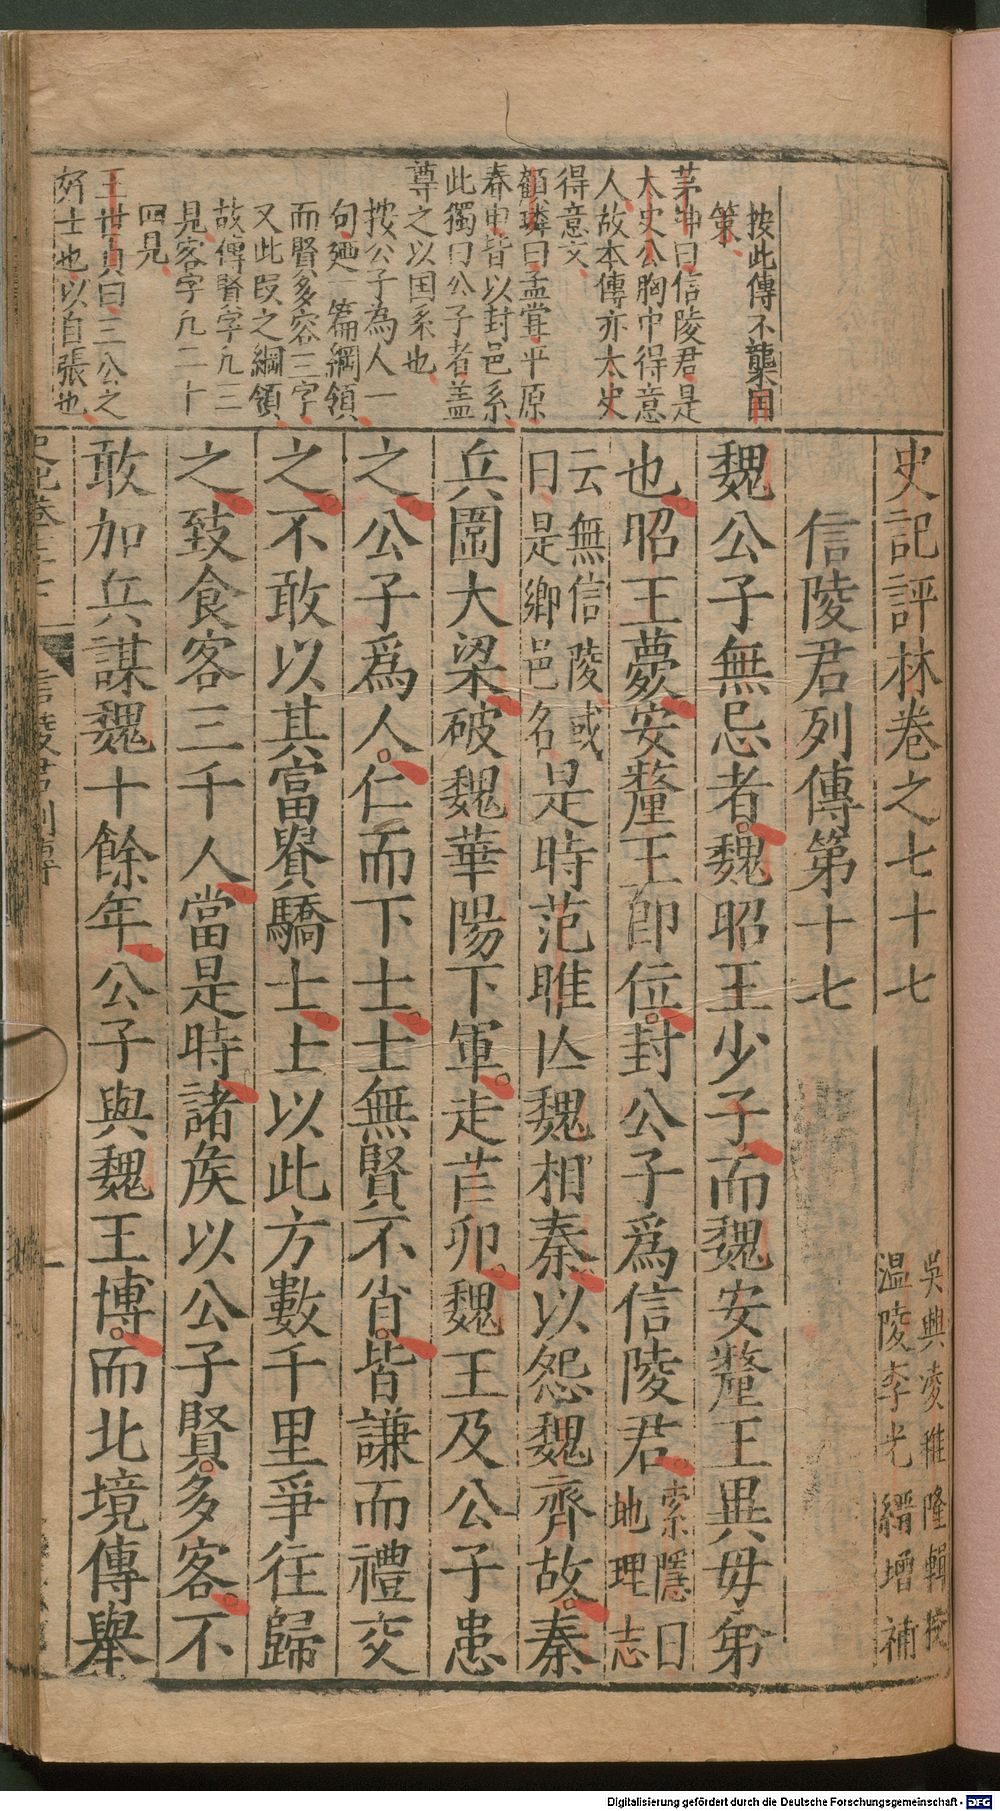 按此傳不襲国
策
茅坤曰信陵君是
太史公胸中得意
人故本傳亦太史
得意文
顧璘曰孟嘗平原
春申皆以封邑系
此獨曰公子者蓋
尊之以国系也
按公子為人一
句廼一篇綱領
而賢多客三字
又此段之綱領
故傳賢字凡三
見客字凡二十
四見
王世貞曰三公之
好士也以自張也
史記評林卷之七十七
吳興凌稚隆輯校
温陵李光縉增補
信陵君列傳第十七
魏公子無忌者。魏昭王少子、而魏安釐王異毋弟
也。昭王薨、安釐王卽位。封公子爲信陵君。索隱曰地理志
云無信陵或曰是鄉邑名是時范雎亾魏相秦、以怨魏齊故。秦
兵圍大梁、破魏華陽下軍。走芒卯。魏王及公子患
之、公子爲人。仁而下士。士無賢不肖。皆謙而禮交
之。不敢以其富貴驕士。士以此方數千里爭往歸
之、致食客三千人、當是時、諸矦以公子賢。多客。不
敢加兵謀魏十餘年、公子與魏王博。而北境傳舉
信陵君列傳
一
Digitalisierung gefördert durch die Deutsche Forschungsgemeinschaft - DFG